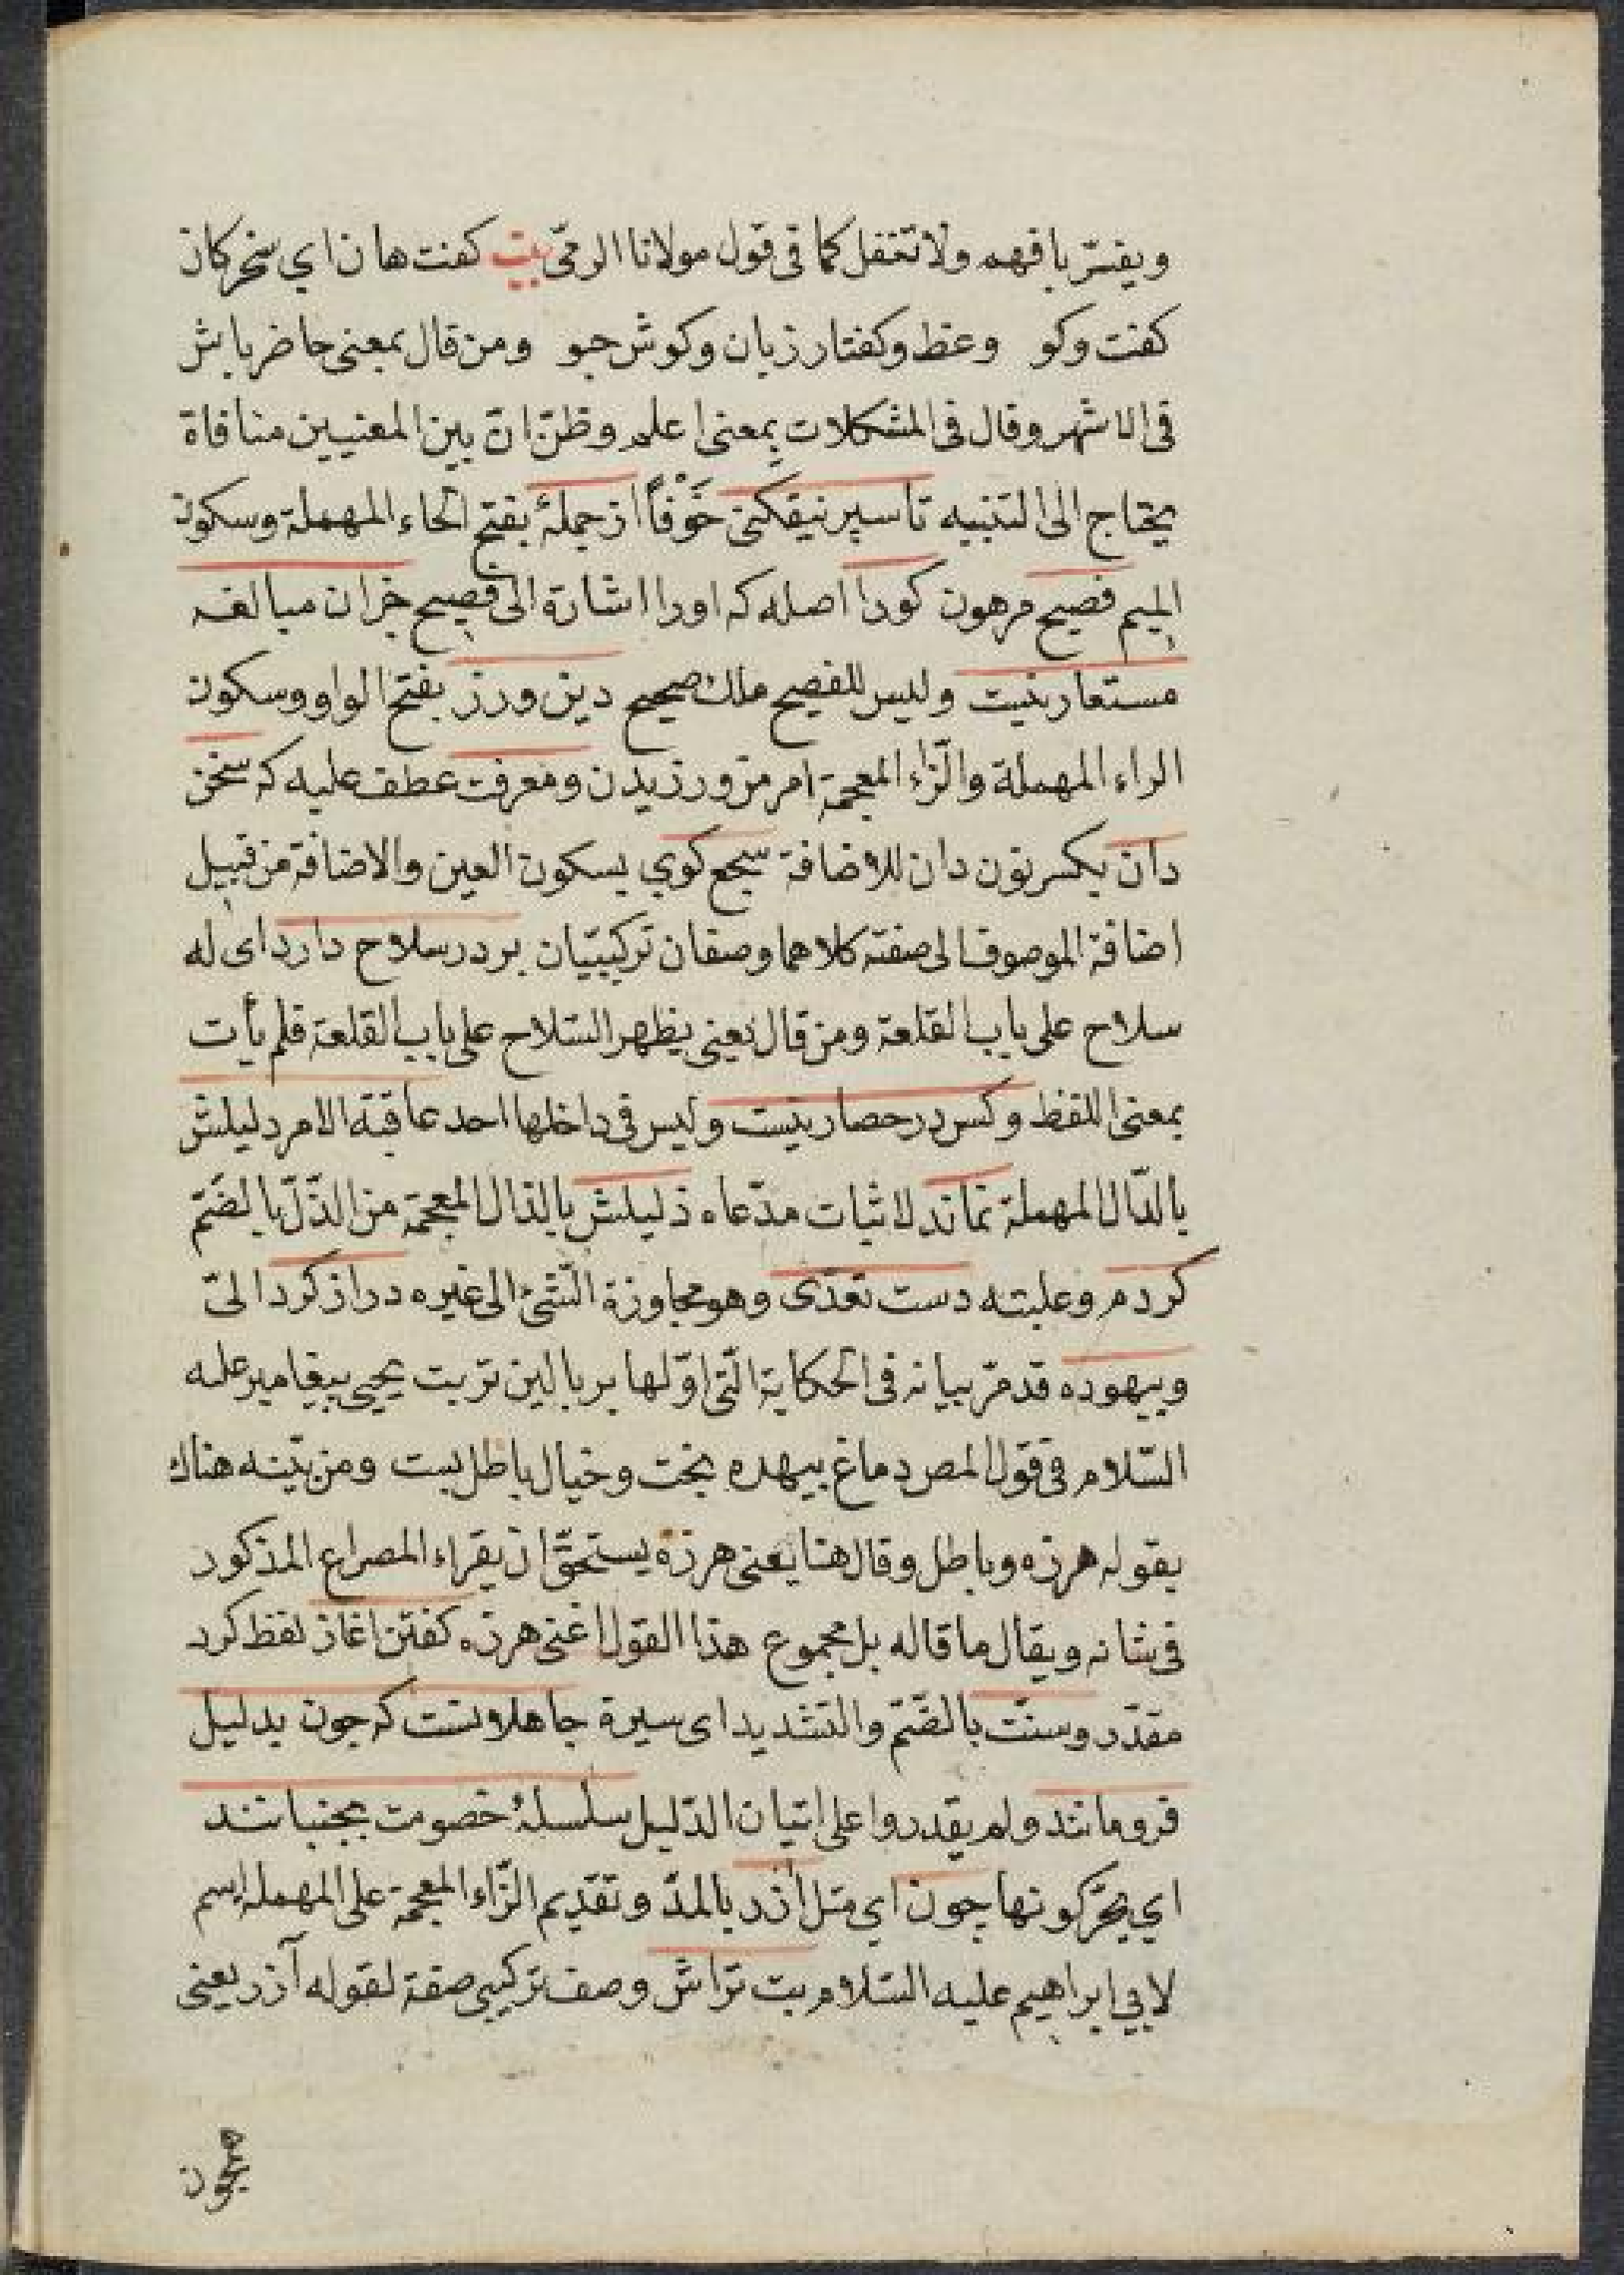 ويفسّر بافهم ولا تغفل كما فى قول مولانا الرمّى بيت كفت هان اي سخركان
كفت وكو وعظ وكفتار زبان وكوش جو ومن قال بمعنى حاضر باش
فى الاشهر وقال فى المشكلات بمعنى اعلم وظنّ انّ بين المعنيين منافاة
يحتاج الى التنبيه تا سپر نيفكنى خَوْفاً از حملۀ بفتح الحاء المهملة وسكون
الميم فصيح مرهون كورا اصله كه اورا اشارة الى فصيح جزان مبالغه
مستعار نيت وليس للفصيح ملك صحيح دين ورز بفتح الواو وسكون
الراء المهملة والزّاء المعجمة امر من ورزيدن ومعرفت عطف عليه كه سخن
دان بكسر نون دان للاضافة سجع كوي بسكون العين والاضافة من قبيل
اضافة الموصوف الى صفته كلاهما وصفان تركيبيّان بر در سلاح دارد اى له
سلاح على باب القلعة ومن قال يعنى يظهر السّلاح على باب القلعة فلم يأت
بمعنى اللفظ وكس در حصار نيست وليس فى داخلها احد عاقبة الامر دليلش
بالدّال المهملة نماند لاثبات مدّعاه ذليلش بالذال المعجمة من الذّلّ بالضّم
كردم وغلبته دست تعدّى وهو مجاوزة الشّئ الى غيره دراز كرد الىّ
وبيهوده قد مرّ بيانه فى الحكاية الّتى اوّلها بر بالين تربت يحيى پيغامبر عليه
السّلام فى قول المص دماغ بيهده پخت وخيال باطل بست ومن بيّنه هناك
بقوله هرزه وباطل وقال هنا يعنى هرزه يستحقّ ان يقراء المصراع المذكور
فى شانه ويقال ما قاله بل مجموع هذا القول اعنى هرزه كفتن اغاز لفظ كرد
مقدّر وسنّت بالضّم والتشديد اى سيرة جاهلانست كه چون بدليل
فرومانند ولم يقدروا على اتيان الدّليل سلسلۀ خصومت بجنبانند
اي يحرّكونها چون اي مثل آزر بالمدّ وتقديم الزّاء المعجمة على المهملة اسم
لابي ابراهيم عليه السّلام بت تراش وصف تركيبى صفة لقوله آزر يعنى
همچون